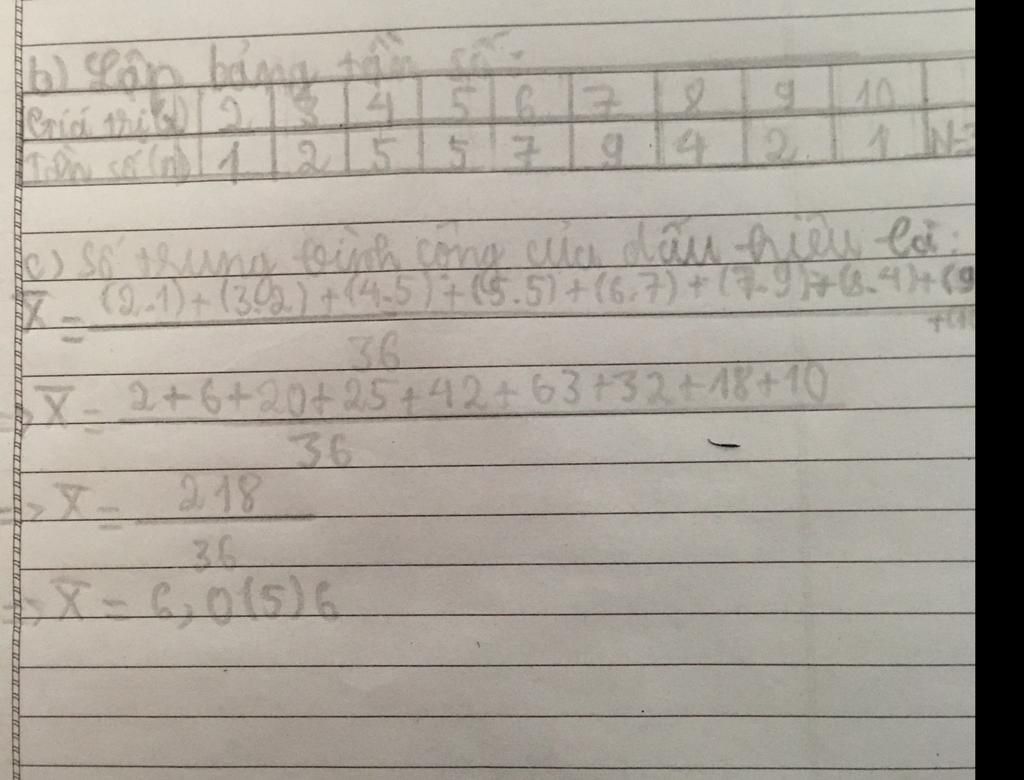 b) Lập bảng tần số:
Giá trị(x) 2 3 4 5 6 7 8 9 10
Tần số(n) 1 2 5 5 7 9 4 2 1 N=
c) Số trung bình cộng của dấu hiệu là:
X̄ = (2.1)+(3.2)+(4.5)+(5.5)+(6.7)+(7.9)+(8.4)+(9
+(1
36
=> X̄ = 2+6+20+25+42+63+32+18+10
36
=> X̄ = 218
36
=> X̄ = 6,0(5)6